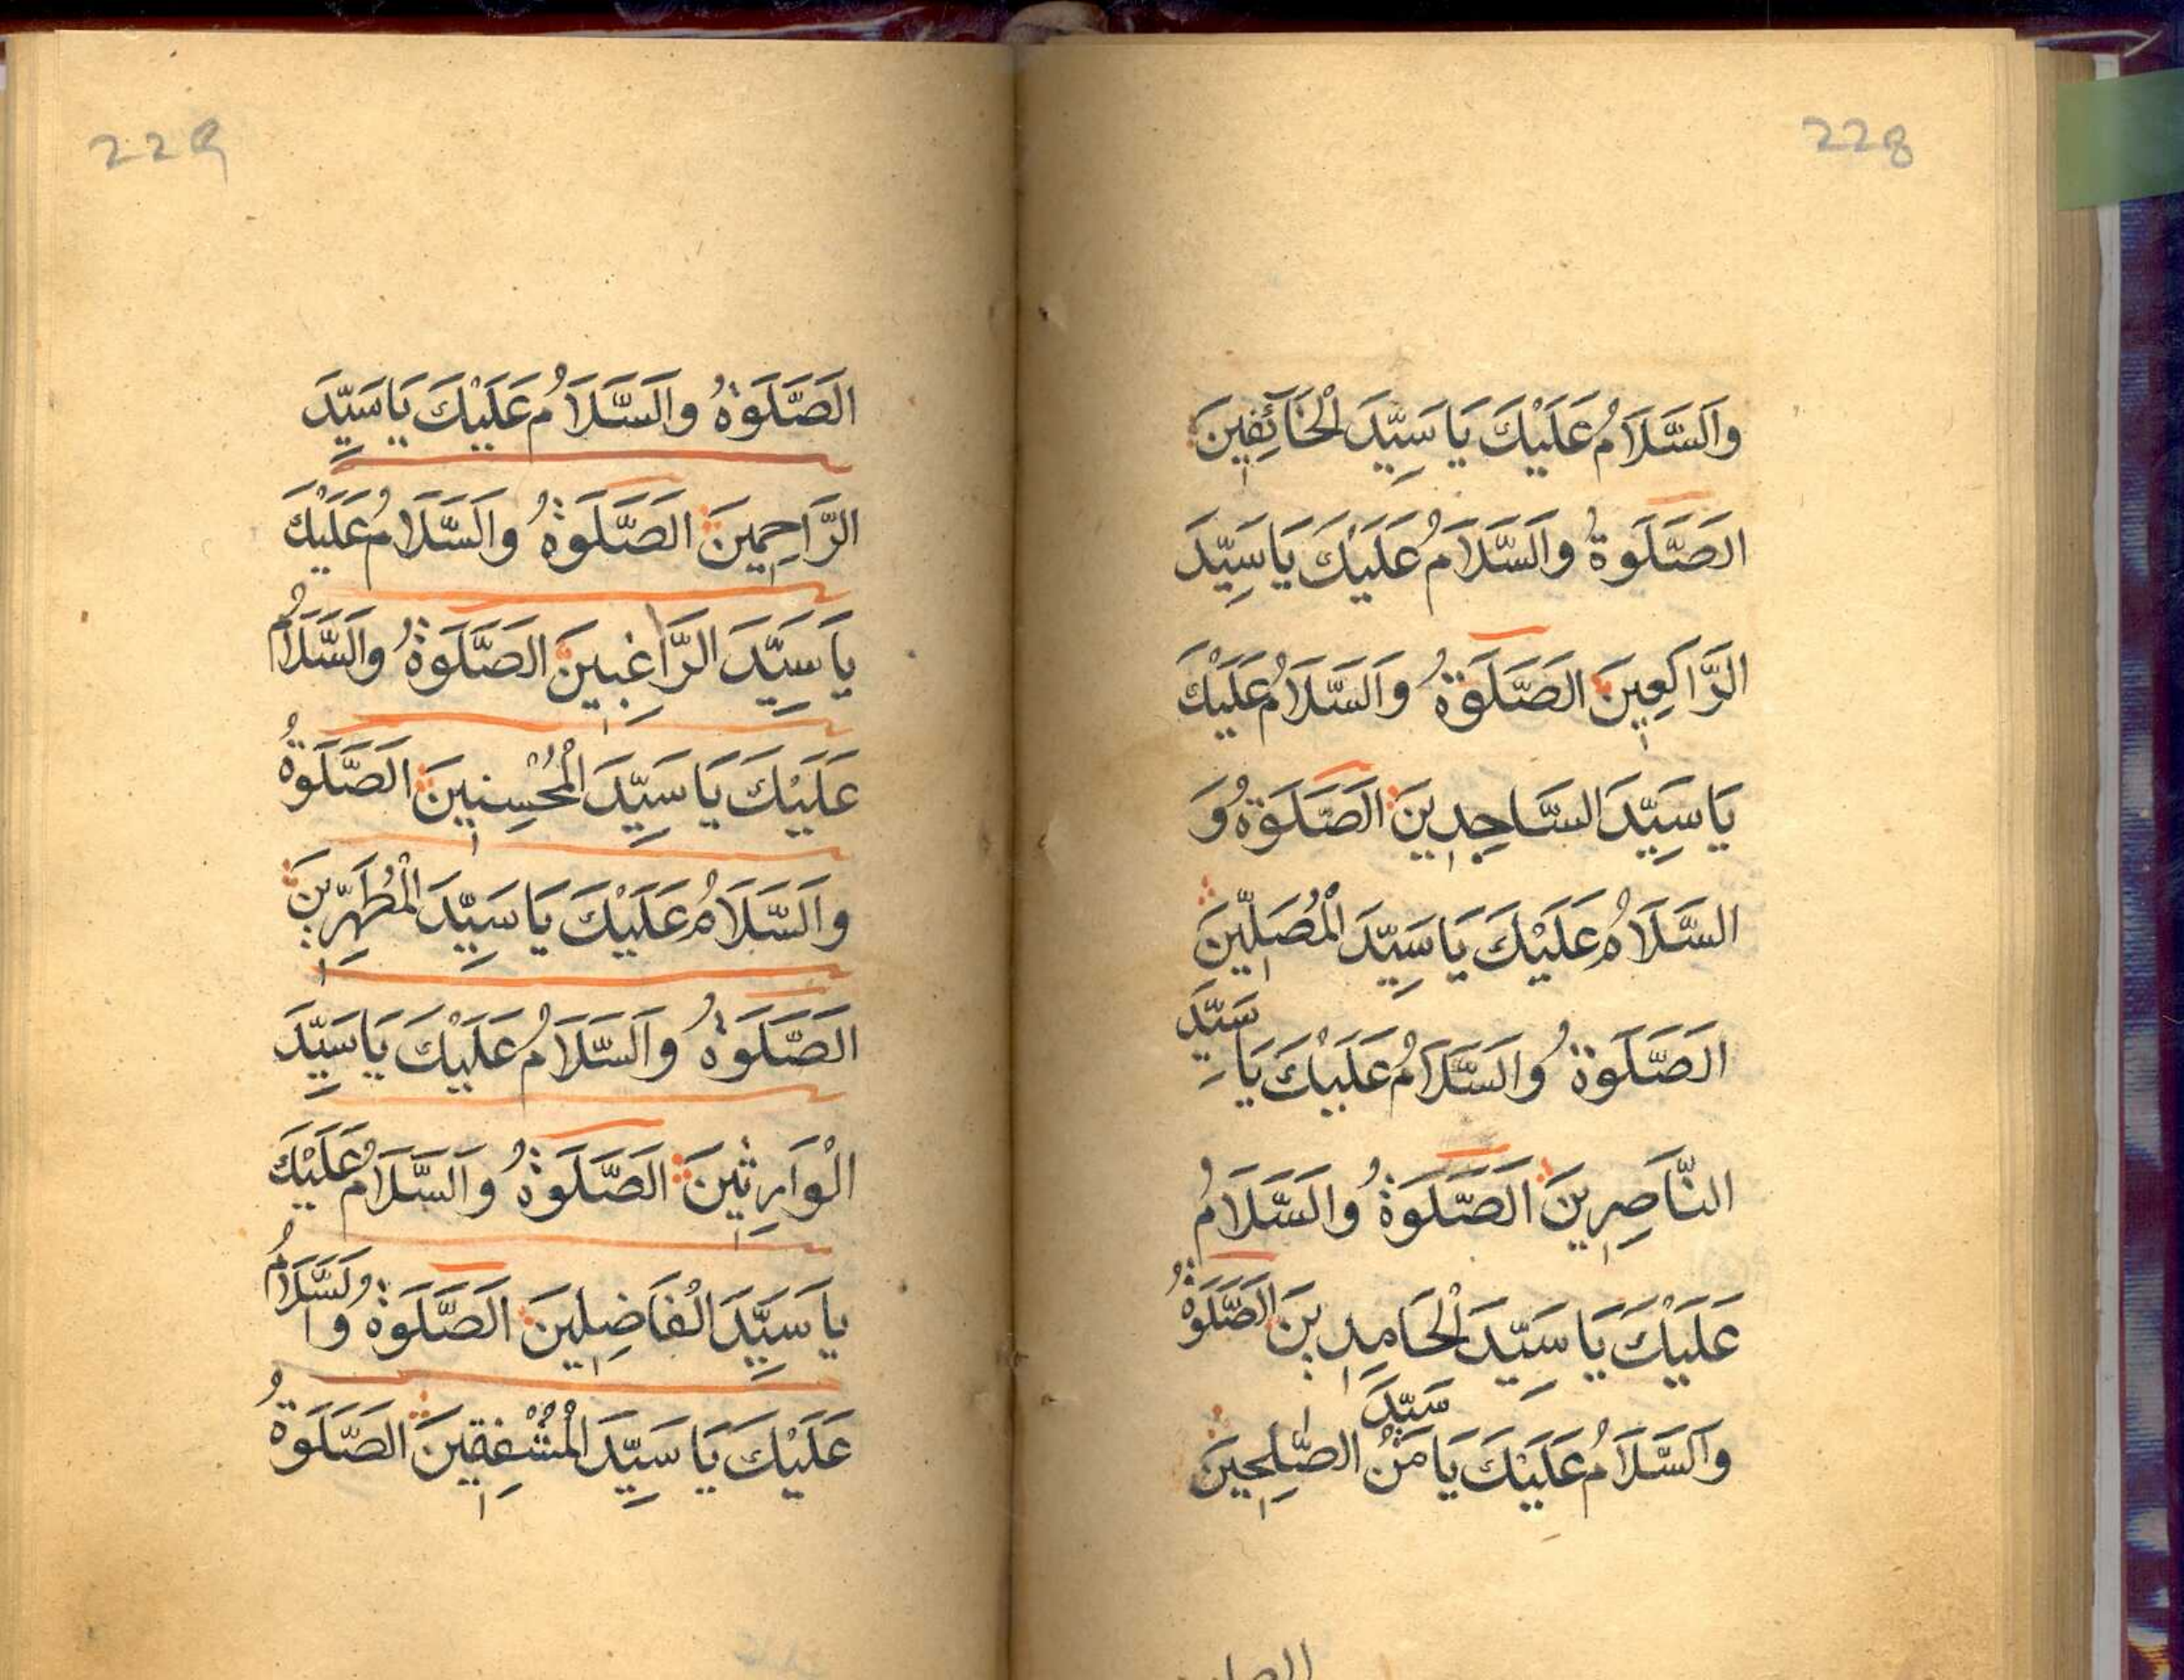 228
وَالسَّلَامُ عَلَيْكَ يَا سَيِّدَ الْخَآئِفِينَ
الصَّلَوةُ وَالسَّلَامُ عَلَيْكَ يَا سَيِّدَ
الرَّاكِعِينَ الصَّلَوةُ وَالسَّلَامُ عَلَيْكَ
يَا سَيِّدَ السَّاجِدِينَ الصَّلَوةُ وَ
السَّلَامُ عَلَيْكَ يَا سَيِّدَ الْمُصَلِّينَ
الصَّلَوةُ وَالسَّلَامُ عَلَيْكَ يَا سَيِّدَ
النَّاصِرِينَ الصَّلَوةُ وَالسَّلَامُ
عَلَيْكَ يَا سَيِّدَ الْحَامِدِينَ الصَّلَوةُ
سَيِّدَ
وَالسَّلَامُ عَلَيْكَ يَا مَنْ الصّٰلِحِينَ
229
الصَّلَوةُ وَالسَّلَامُ عَلَيْكَ يَا سَيِّدَ
الرَّاحِمِينَ الصَّلَوةُ وَالسَّلَامُ عَلَيْكَ
يَا سَيِّدَ الرَّاغِبِينَ الصَّلَوةُ وَالسَّلَامُ
عَلَيْكَ يَا سَيِّدَ الْمُحْسِنِينَ الصَّلَوةُ
وَالسَّلَامُ عَلَيْكَ يَا سَيِّدَ الْمُطَهِّرِينَ
الصَّلَوةُ وَالسَّلَامُ عَلَيْكَ يَا سَيِّدَ
الْوَارِثِينَ الصَّلَوةُ وَالسَّلَامُ عَلَيْكَ
يَا سَيِّدَ الْفَاضِلِينَ الصَّلَوةُ وَالسَّلَامُ
عَلَيْكَ يَا سَيِّدَ الْمُشْفِقِينَ الصَّلَوةُ